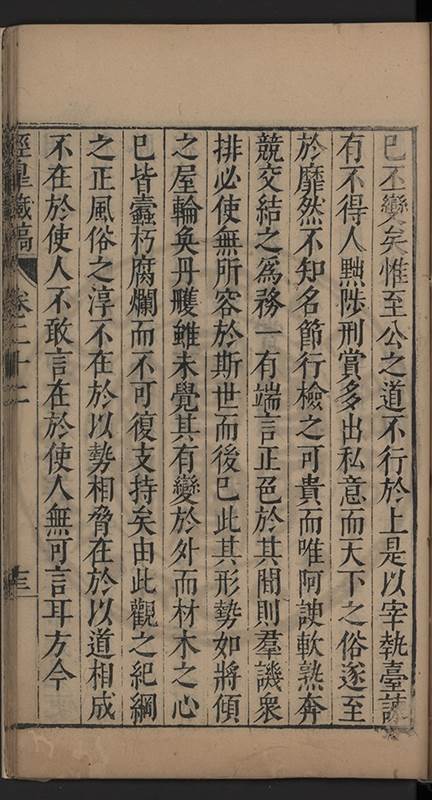 已丕變矣惟至公之道不行於上是以宰執臺諫
有不得人黜陟刑賞多出私意而天下之俗遂至
於靡然不知名節行檢之可貴而唯阿諛軟熟奔
競交結之為務一有端言正色於其間則羣譏衆
排必使無所容於斯世而後已此其形勢如將傾
之屋輪奐丹雘雖未覺其有變於外而材木之心
已皆蠹朽腐爛而不可復支持矣由此觀之紀綱
之正風俗之淳不在於以勢相脅在於以道相成
不在於使人不敢言在於使人無可言耳方今
經皇藏稿 卷二十二 三